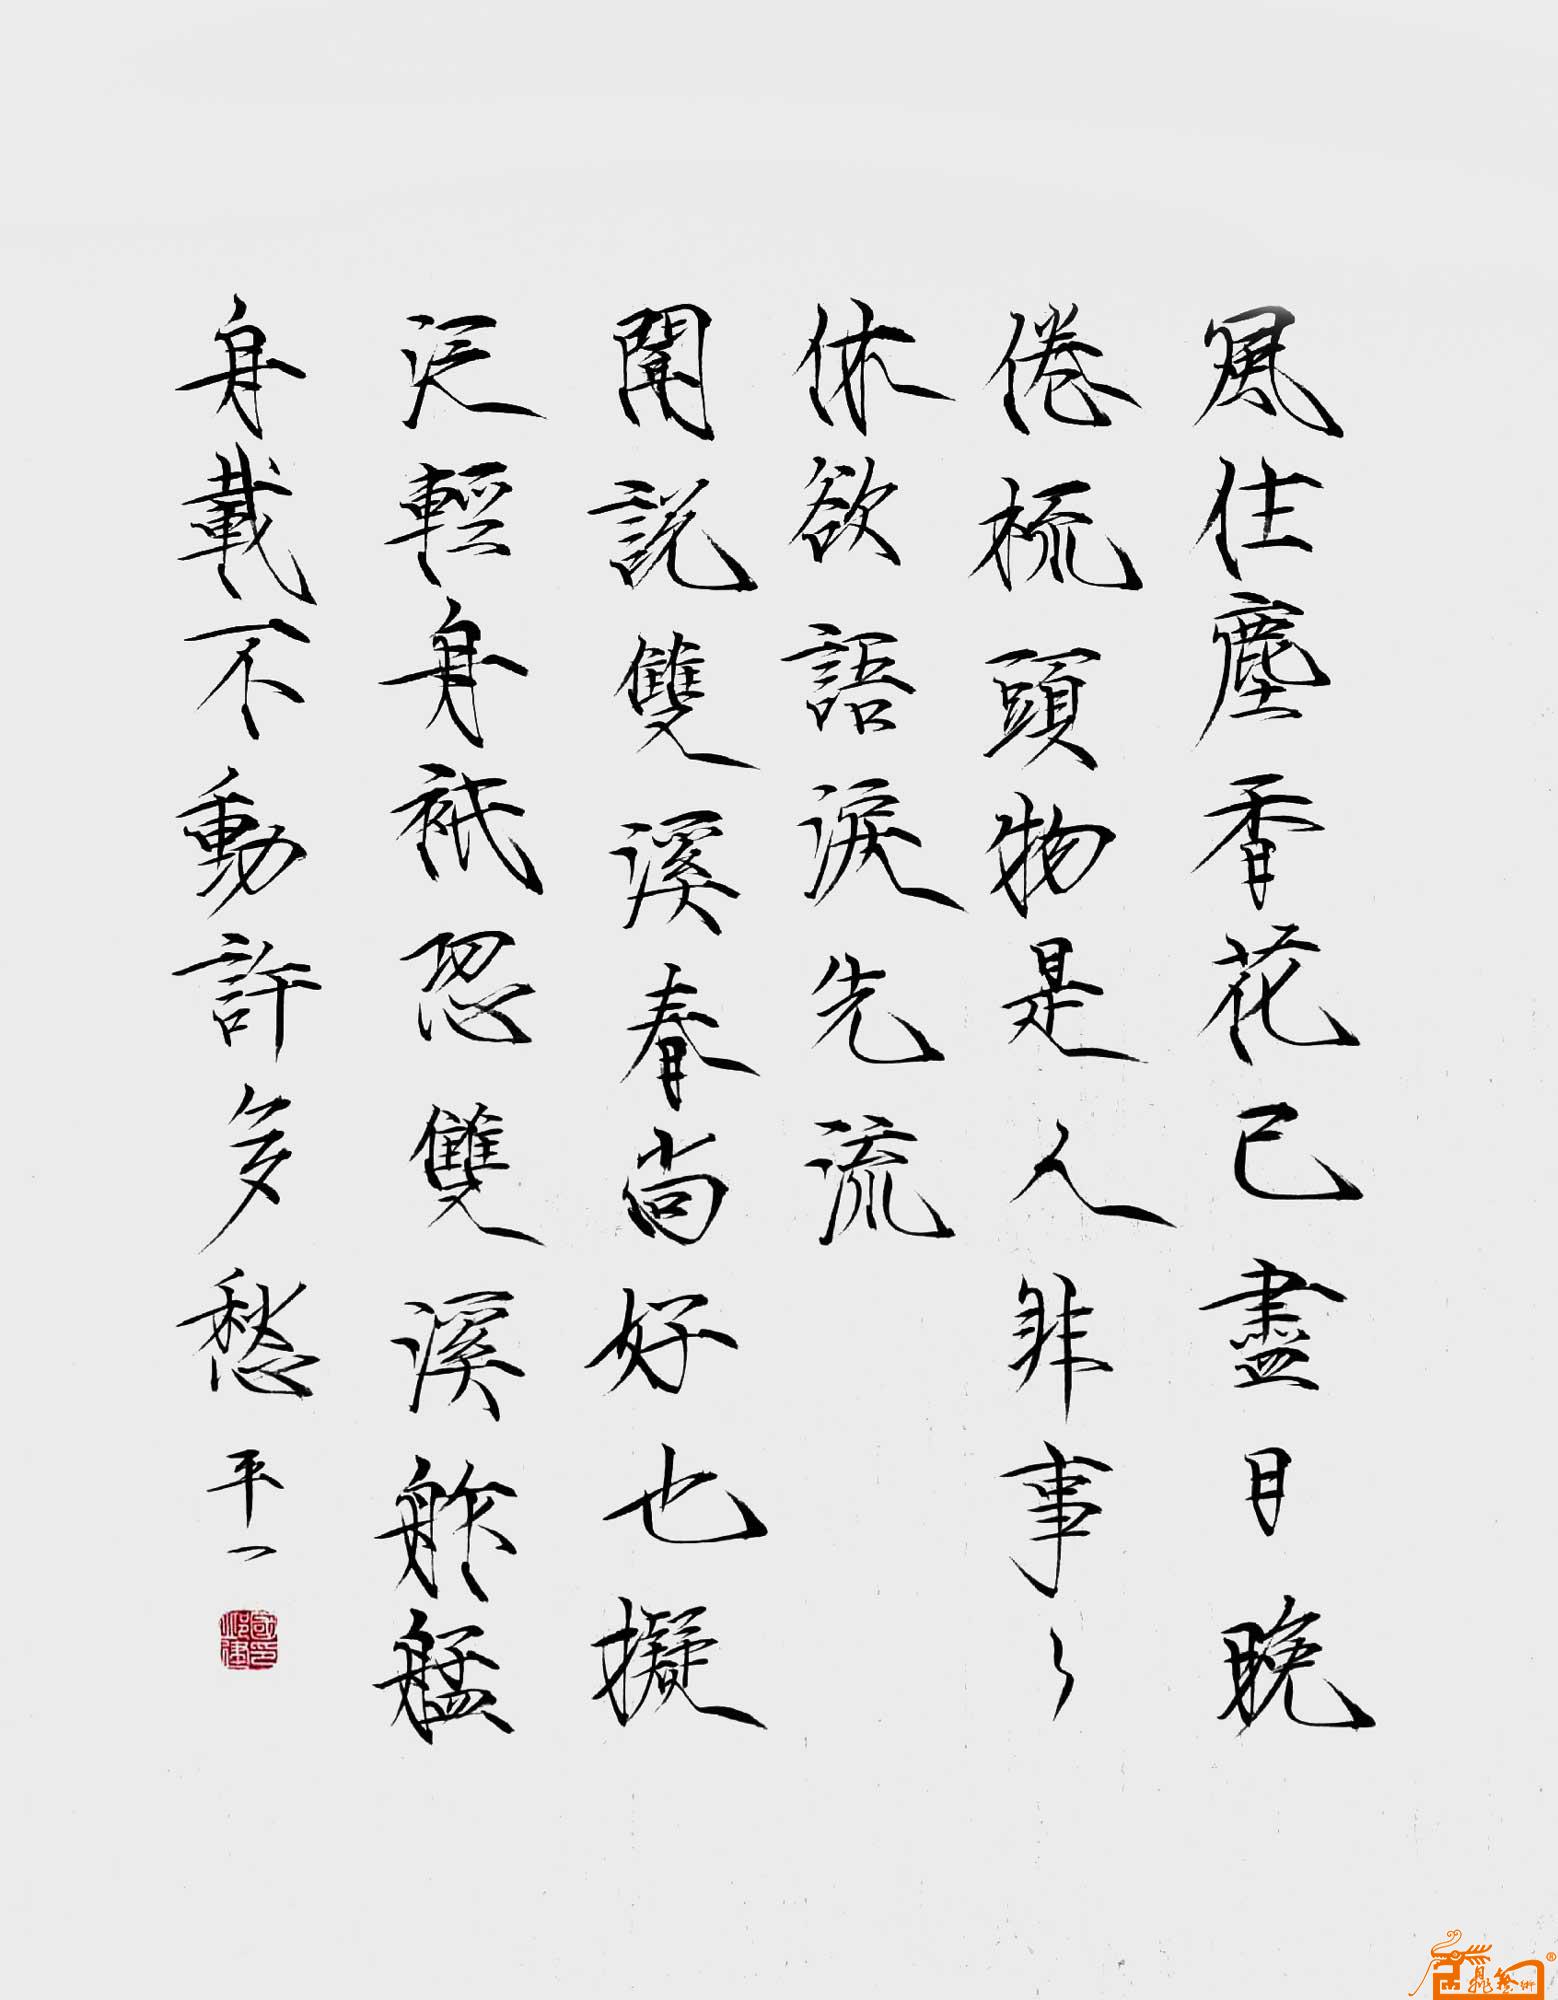 風住塵香花已盡日晚
倦梳頭物是人非事〻
休欲語淚先流
聞說雙溪春尚好也擬
泛輕舟衹恐雙溪舴艋
舟載不動許多愁
平一